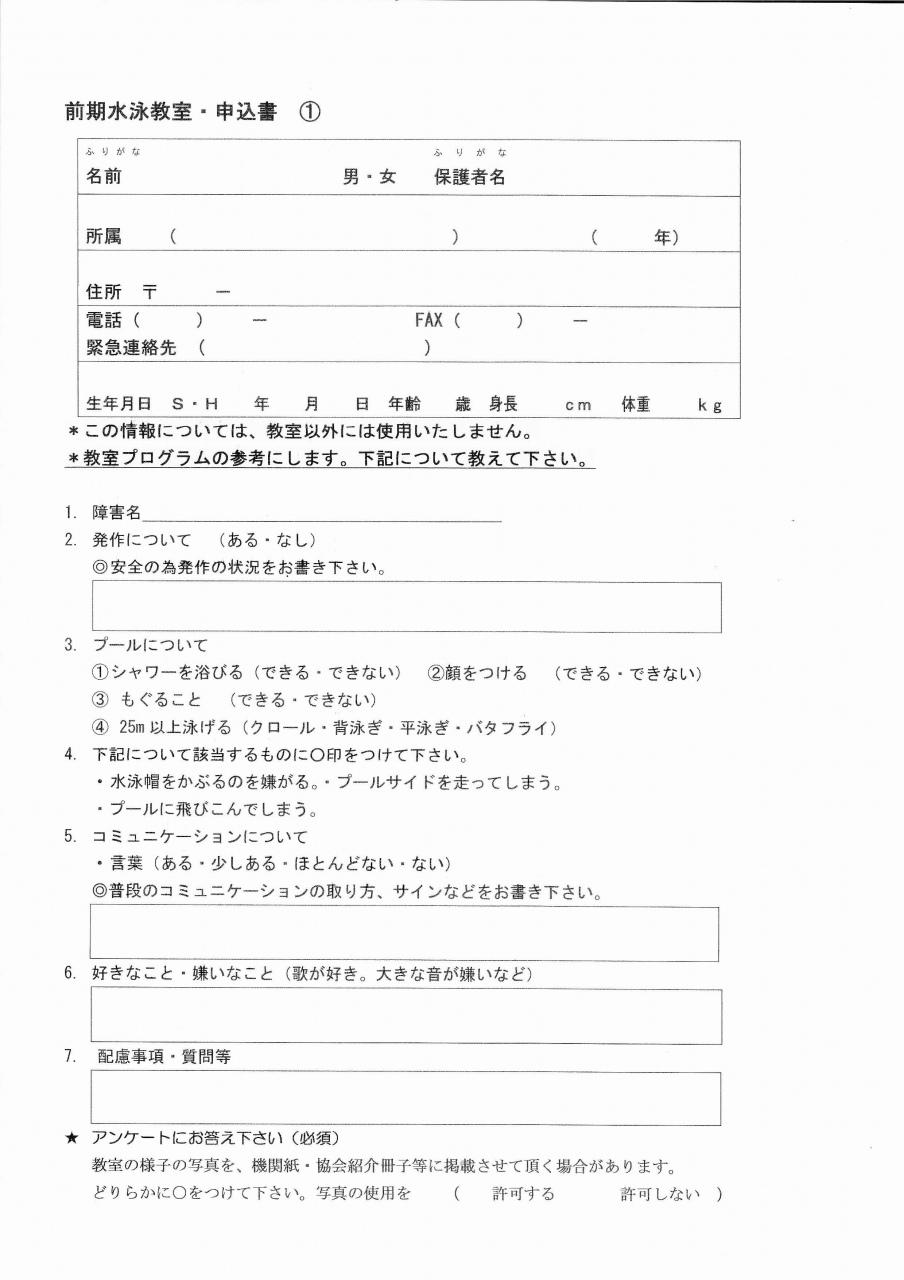 前期水泳教室・申込書　①
ふりがな　ふりがな
名前　男・女　保護者名
所属　（　）　（　年）
住所　〒　－
電話（　）　－　FAX（　）　－
緊急連絡先　（　）
生年月日　S・H　年　月　日　年齢　歳　身長　cm　体重　kg
＊この情報については、教室以外には使用いたしません。
＊教室プログラムの参考にします。下記について教えて下さい。
1. 障害名
2. 発作について　（ある・なし）
◎安全の為発作の状況をお書き下さい。
3. プールについて
①シャワーを浴びる（できる・できない）　②顔をつける　（できる・できない）
③ もぐること　（できる・できない）
④ 25m以上泳げる（クロール・背泳ぎ・平泳ぎ・バタフライ）
4. 下記について該当するものに〇印をつけて下さい。
・水泳帽をかぶるのを嫌がる。・プールサイドを走ってしまう。
・プールに飛びこんでしまう。
5. コミュニケーションについて
・言葉（ある・少しある・ほとんどない・ない）
◎普段のコミュニケーションの取り方、サインなどをお書き下さい。
6. 好きなこと・嫌いなこと（歌が好き。大きな音が嫌いなど）
7. 配慮事項・質問等
★ アンケートにお答え下さい（必須）
教室の様子の写真を、機関紙・協会紹介冊子等に掲載させて頂く場合があります。
どりらかに〇をつけて下さい。写真の使用を　（　許可する　許可しない　）